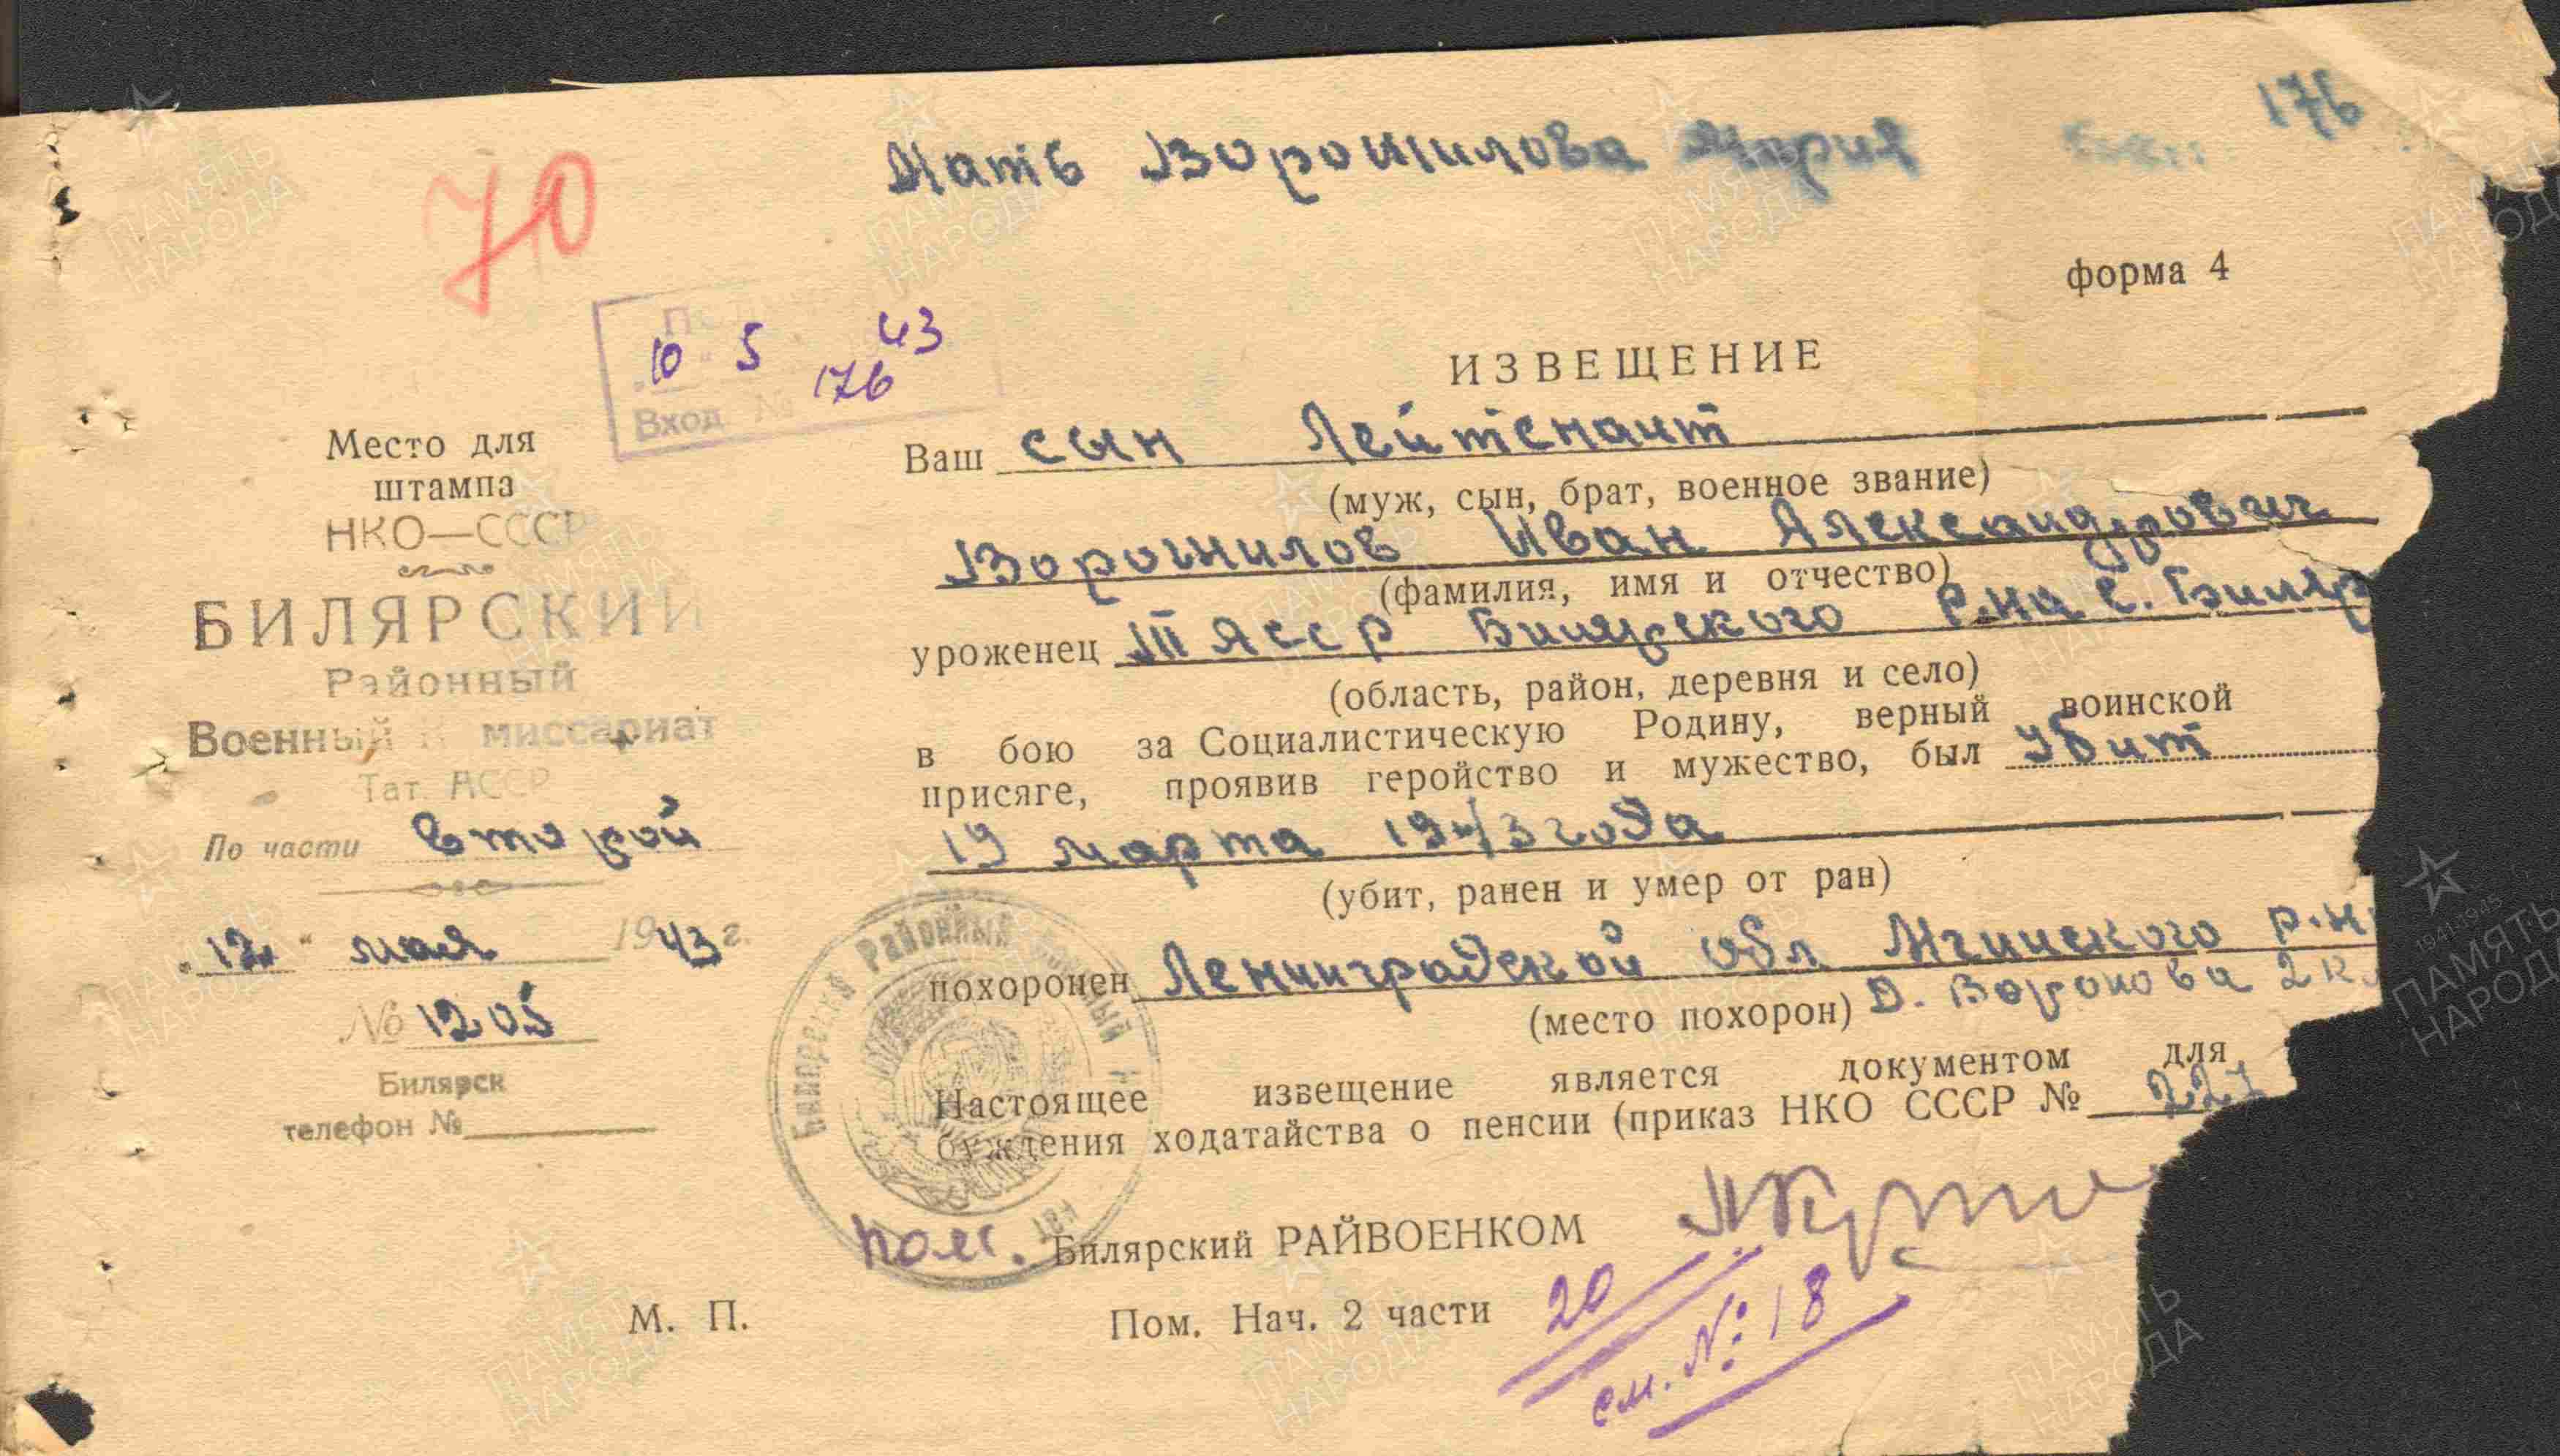 176
Мать Ворошилова Мария
70
форма 4
10 5 43
176
Вход. №
ИЗВЕЩЕНИЕ
Место для
штампа
НКО—СССР
БИЛЯРСКИЙ
Районный
Военный К миссариат
Тат. АССР
По части второй
"12" мая 1943 г.
№ 1205
Билярск
телефон №
Ваш сын Лейтенант
(муж, сын, брат, военное звание)
Ворошилов Иван Александрович
(фамилия, имя и отчество)
уроженец ТАССР Билярского р-на с. Биляр
(область, район, деревня и село)
в бою за Социалистическую Родину, верный воинской
присяге, проявив геройство и мужество, был убит
19 марта 1943 года
(убит, ранен и умер от ран)
похоронен Ленинградской обл Мгинского р-н
(место похорон) д. Воронова 2 к
Настоящее извещение является документом для
буждения ходатайства о пенсии (приказ НКО СССР № 227
пом. Билярский РАЙВОЕНКОМ
М. П.
Пом. Нач. 2 части
20
см. № 18
ПАМЯТЬ
НАРОДА
1941-1945